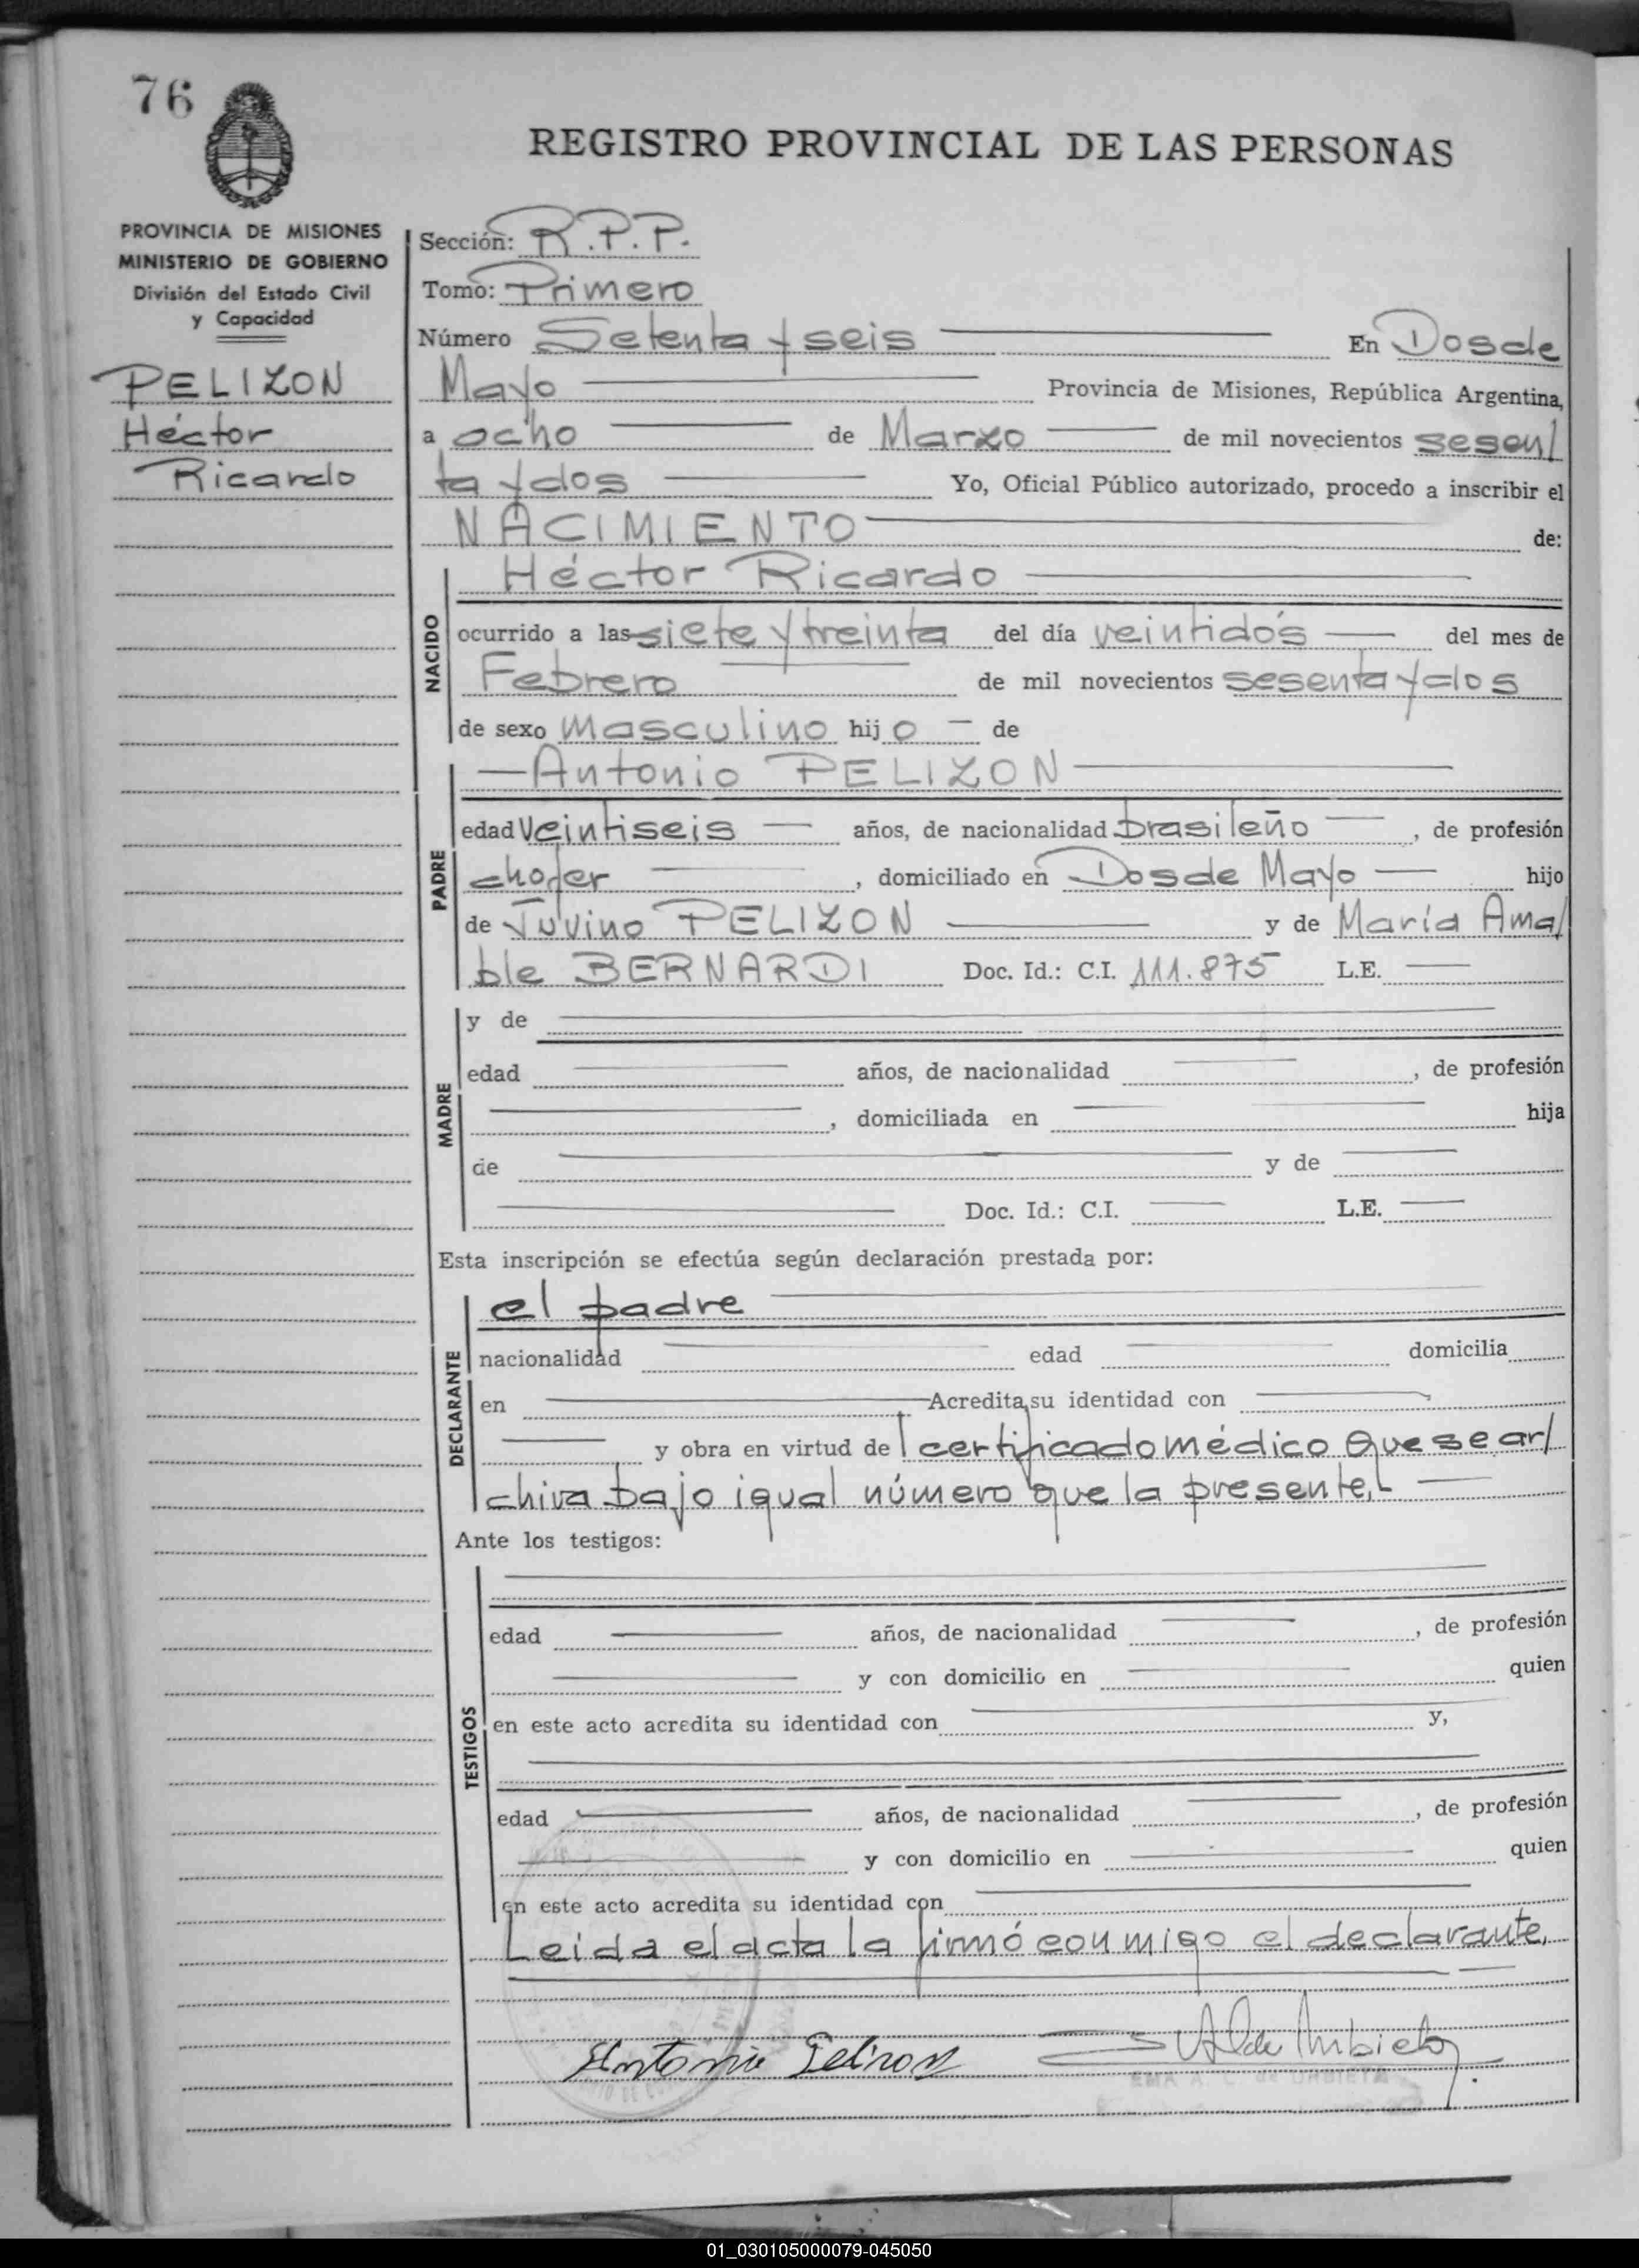 76
REGISTRO PROVINCIAL DE LAS PERSONAS
PROVINCIA DE MISIONES
MINISTERIO DE GOBIERNO
División del Estado Civil
y Capacidad
PELIZON
Héctor
Ricardo
Sección: R.P.P.
Tomo: Primero
Número Setenta y seis En Dos de
Mayo Provincia de Misiones, República Argentina,
a ocho de Marzo de mil novecientos sesen/
ta y dos Yo, Oficial Público autorizado, procedo a inscribir el
NACIMIENTO de:
NACIDO
Héctor Ricardo
ocurrido a las siete y treinta del día veintidós del mes de
Febrero de mil novecientos sesenta y dos
de sexo masculino hijo de
PADRE
Antonio PELIZON
edad veintiseis años, de nacionalidad brasileño, de profesión
chofer, domiciliado en Dos de Mayo hijo
de Juvino PELIZON y de María Ama/
ble BERNARDI Doc. Id.: C.I. 111.875 L.E.
MADRE
y de
edad años, de nacionalidad , de profesión
, domiciliada en hija
de y de
Doc. Id.: C.I. L.E.
Esta inscripción se efectúa según declaración prestada por:
DECLARANTE
el padre
nacionalidad edad domicilia
en Acredita su identidad con
y obra en virtud de certificado médico que se ar/
chiva bajo igual número que la presente.
Ante los testigos:
TESTIGOS
edad años, de nacionalidad , de profesión
y con domicilio en quien
en este acto acredita su identidad con y,
edad años, de nacionalidad , de profesión
y con domicilio en quien
en este acto acredita su identidad con
Leida el acta la firmó conmigo el declarante.
Antonio Pelizon
de Urbieta
EMA A. C. de URBIETA
01_030105000079-045050